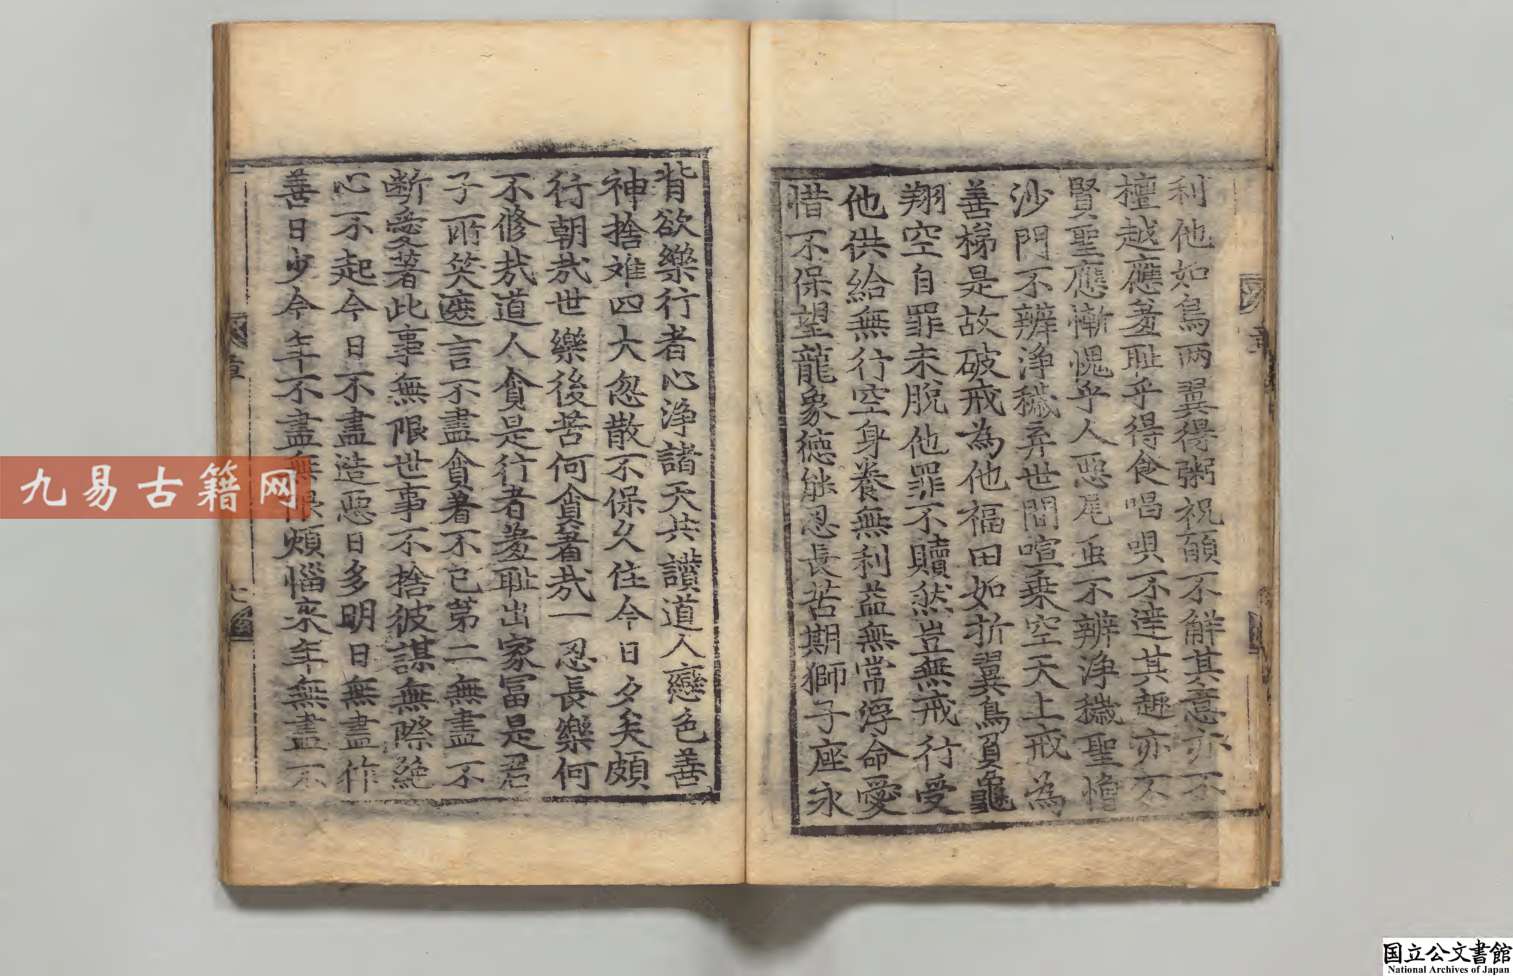 利他如鳥兩翼得粥祝願不解其意亦不
檀越應羞耻乎得食唱唄不達其趣亦不
賢聖應慚愧乎人惡尾虫不辨淨穢聖憎
沙門不辨淨穢弃世間喧乘空天上戒為
善梯是故破戒為他福田如折翼鳥負龜
翔空自罪未脫他罪不贖然豈無戒行受
他供給無行空身養無利益無常浮命愛
惜不保望龍象德能忍長苦期獅子座永
背欲樂行者心淨諸天共讃道人戀色善
神捨难四大忽散不保久住今日夕矣頗
行朝㢤世樂後苦何貪著㢤一忍長樂何
不修㢤道人貪是行者羞耻出家冨是君
子所笑遮言不盡貪著不已第二無盡不
断愛著此事無限世事不捨彼謀無際絶
心不起今日不盡造惡日多明日無盡作
善日少今年不盡無限煩惱來年無盡不
章
九易古籍网
国立公文書館
National Archives of Japan